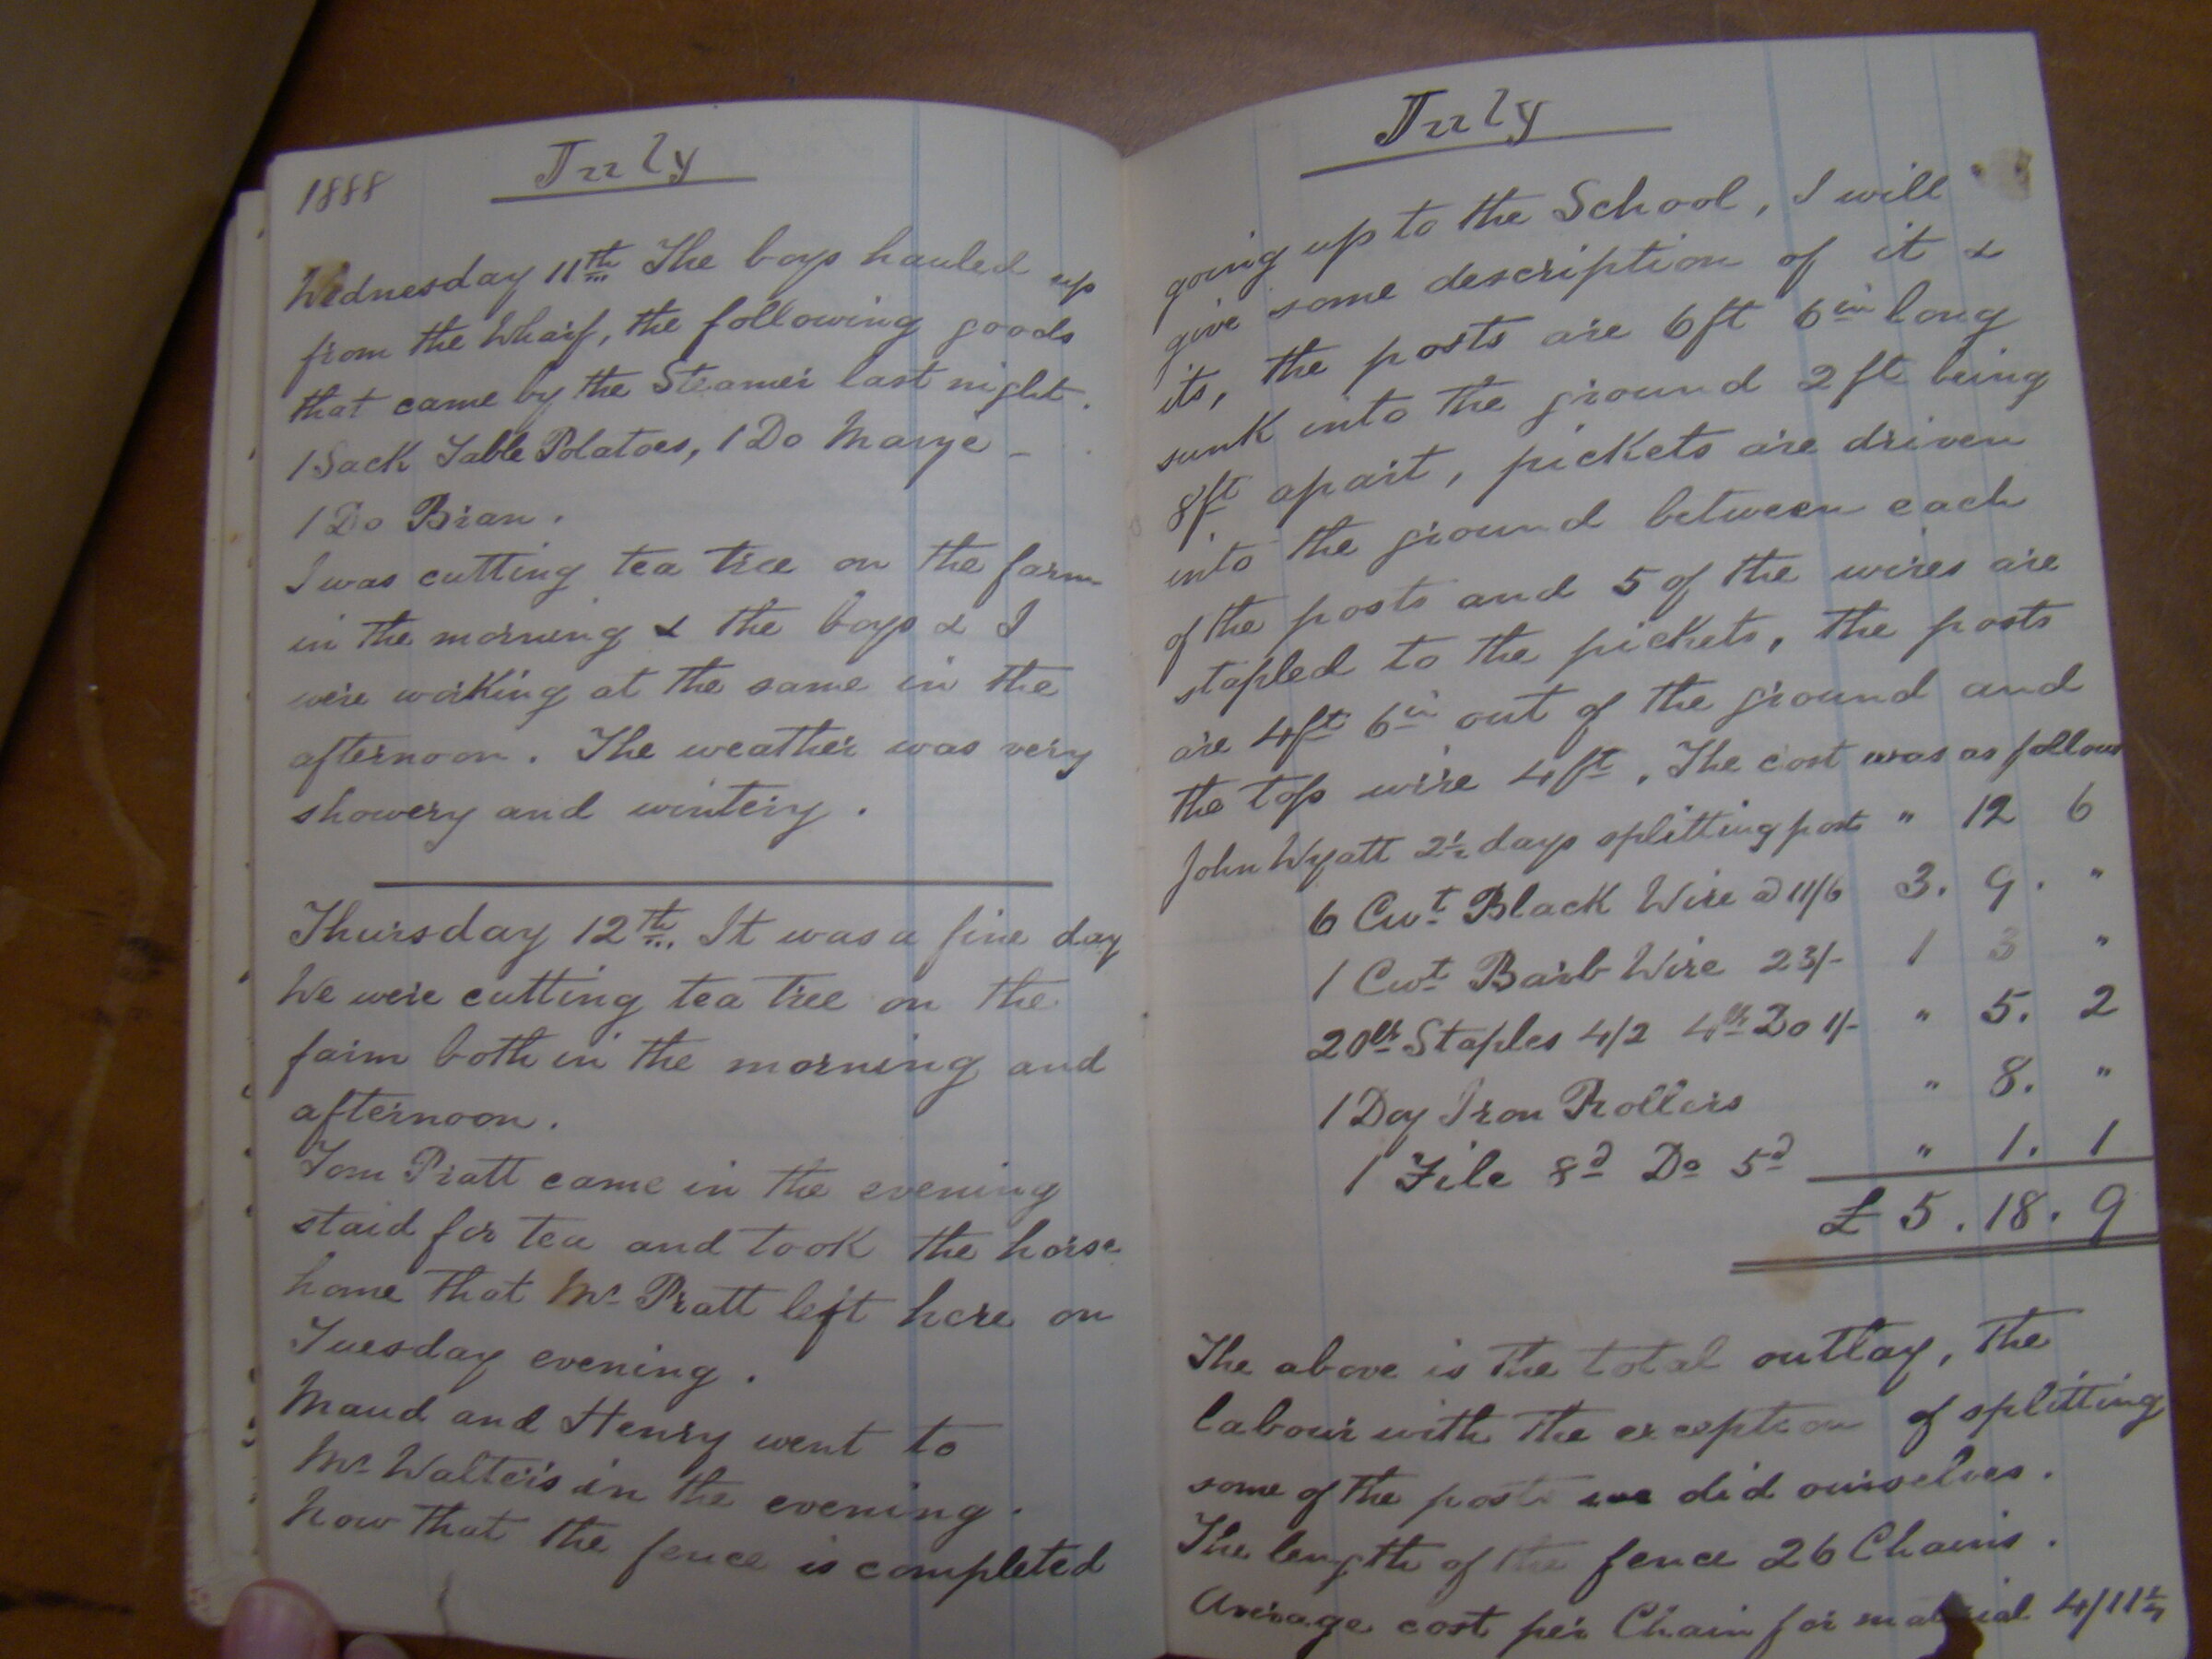 1888 July
Wednesday 11th The boys hauled up
from the Wharf, the following goods
that came by the Steamer last night.
1 Sack Table Potatoes, 1 Do
1 Do Bran.
I was cutting tea tree on the farm
in the morning & the boys & I
were working at the same in the
afternoon. The weather was very
showery and wintery.
Thursday 12th. It was a fine day
We were cutting tea tree on the
farm both in the morning and
afternoon.
Tom Pratt came in the evening
staid for tea and took the horse
home that Mr Pratt left here on
Tuesday evening.
Maud and Henry went to
Mr Walters in the evening.
Now that the fence is completed
July
going up to the School, I will
give some description of it &
its, the posts are 6ft 6in long
sunk into the ground 2 ft being
8ft apart, pickets are driven
into the ground between each
of the posts and 5 of the wires are
stapled to the pickets, the posts
are 4ft 6in out of the ground and
the top wire 4ft. The cost was as follows
John Wyatt 2½ days splitting posts " 12 6
6 Cwt Black Wire @ 11/6 3. 9. "
1 Cwt Barb Wire 23/- 1 3 "
20lb Staples 4/2 4lb Do 1/- " 5. 2
1 Doz Iron Rollers " 8. "
1 File 8d Do 5d " 1. 1
£ 5. 18. 9
The above is the total outlay, the
labour with the exception of splitting
some of the posts we did ourselves.
The length of the fence 26 Chains.
Average cost per Chain for material 4/11